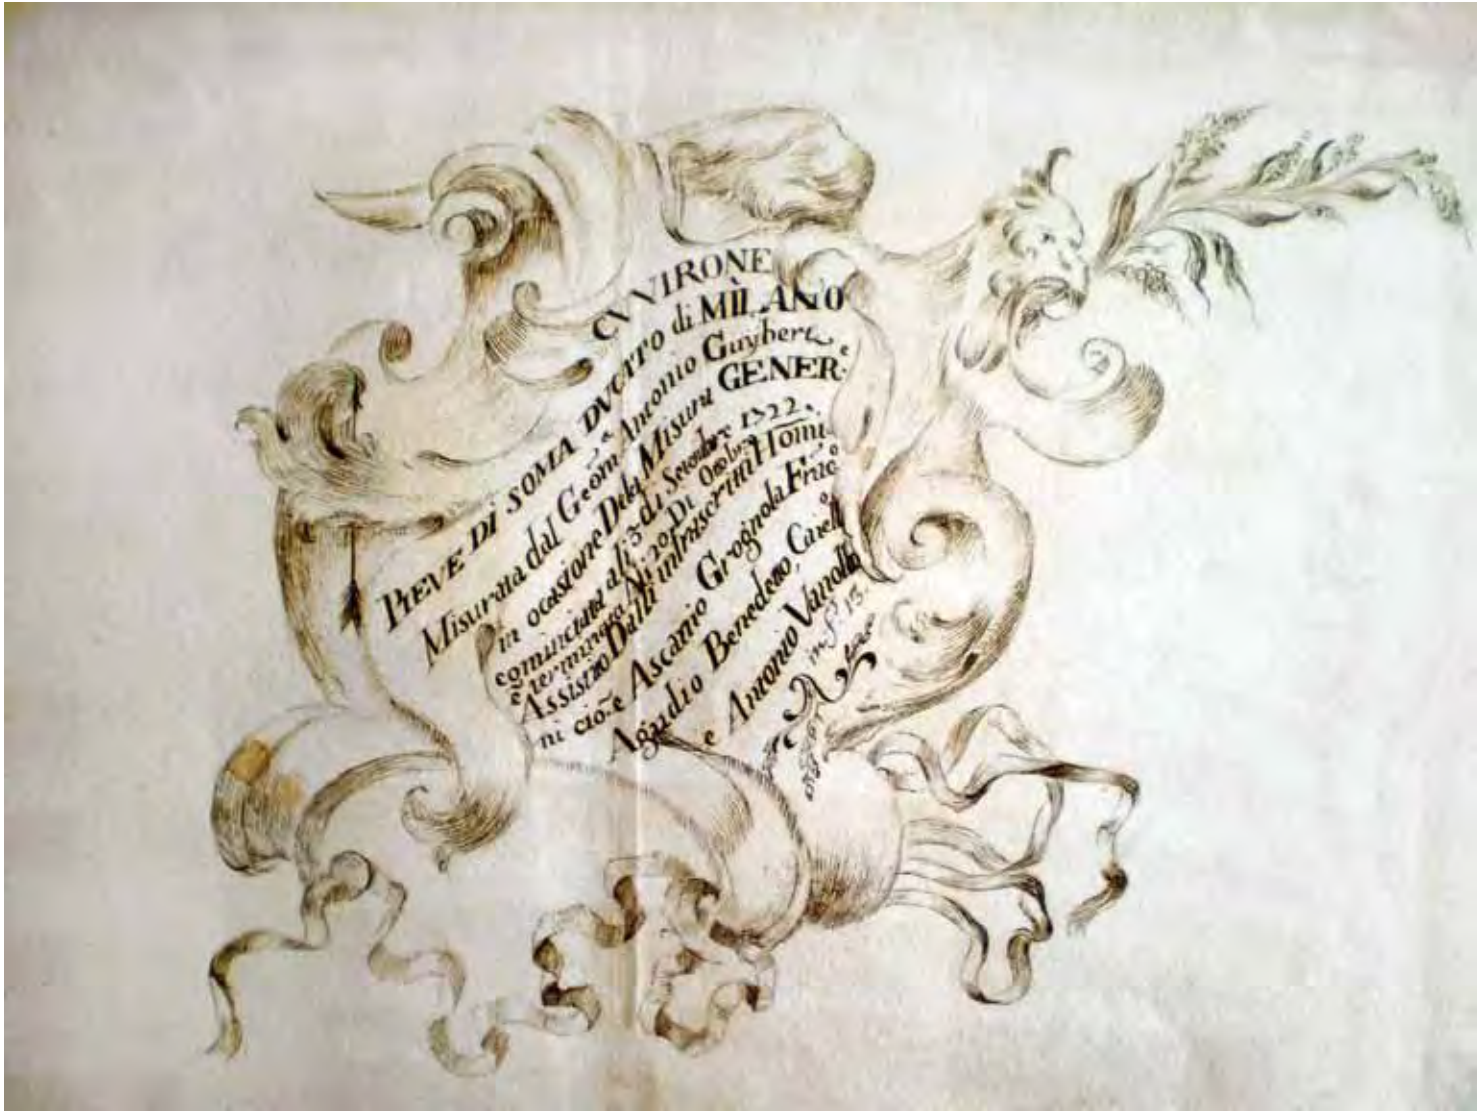 CVVIRONE
PIEVE DI SOMA DVCATO di MÌLANO
Misurata dal Geom.ª Antonio Guybert
in ocasione Dela Misura GENER.e
cominciata ali 3 di Setembre 1722.
e terminata Ali 20 Di Ottobre
Assistito Dalli infrascritti Homi
ni cio.e Ascanio Grognola
Agudio Benedetto,
e Antonio
in f. 13.